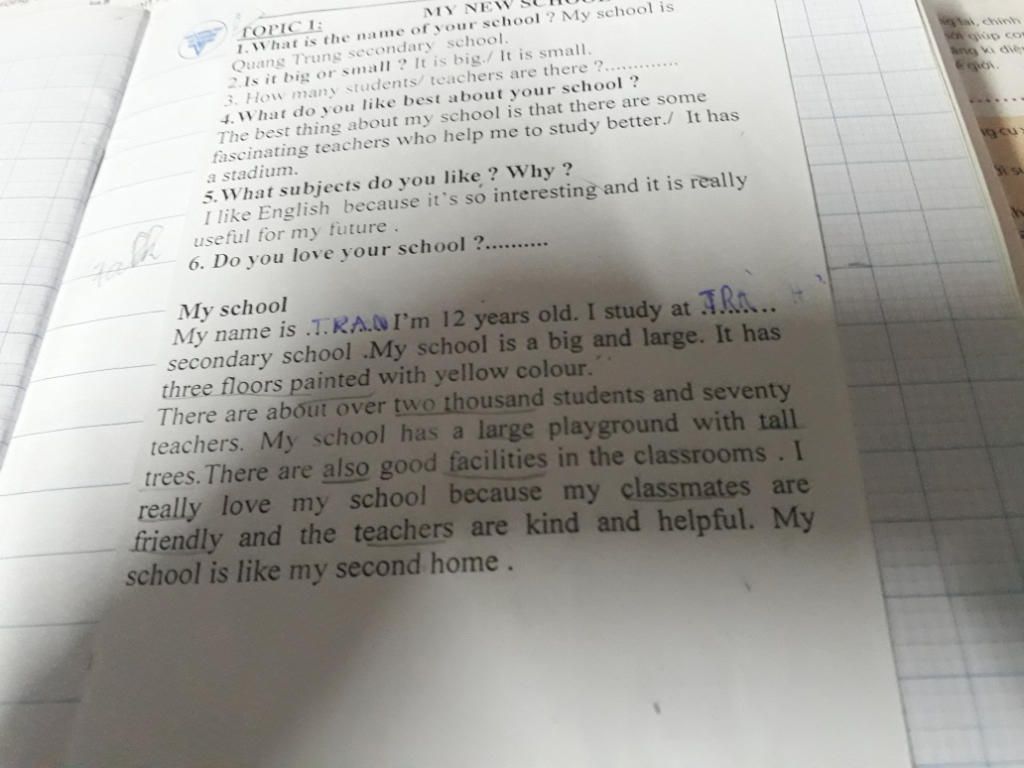 MY NEW SCHOOL
TOPIC 1:
1.What is the name of your school ? My school is
Quang Trung secondary school.
2.Is it big or small ? It is big./ It is small.
3. How many students/ teachers are there ?.............
4.What do you like best about your school ?
The best thing about my school is that there are some
fascinating teachers who help me to study better./ It has
a stadium.
5.What subjects do you like ? Why ?
I like English because it's so interesting and it is really
useful for my future .
6. Do you love your school ?..........
My school
My name is .T.RA.N I'm 12 years old. I study at .T.RA...
secondary school .My school is a big and large. It has
three floors painted with yellow colour.
There are about over two thousand students and seventy
teachers. My school has a large playground with tall
trees.There are also good facilities in the classrooms . I
really love my school because my classmates are
friendly and the teachers are kind and helpful. My
school is like my second home .